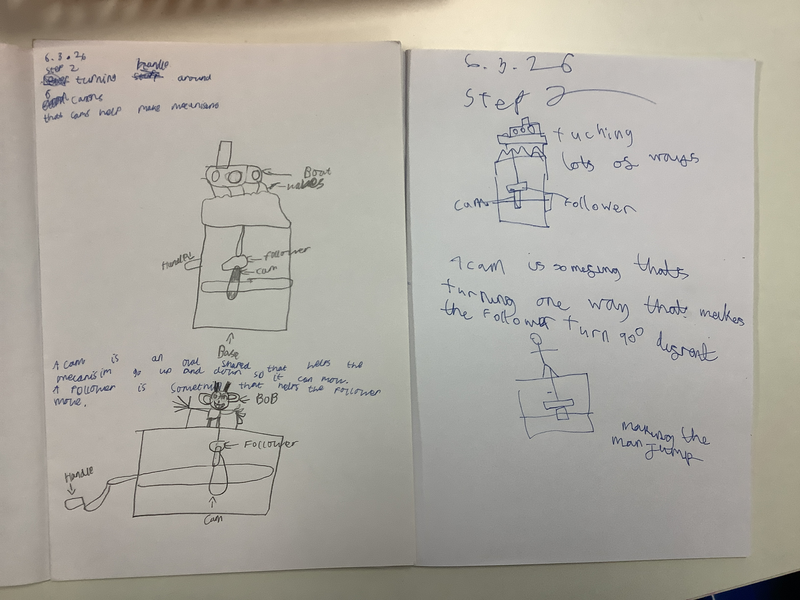 6.3.26
step 2
turning handle around
cams
that cams help make mecanisms
Boat
waves
Handle
follower
cam
Base
A cam is an oval shaped so that helps the
mecanisim to up and down so it can move.
A follower is something that helps the follower
move.
BOB
Follower
Handle
Cam
6.3.26
Step 2
tuching
lots of ways
Cam
Follower
A cam is someging thats
turning one way that makes
the Follower turn 90° degrent
making the
man jump